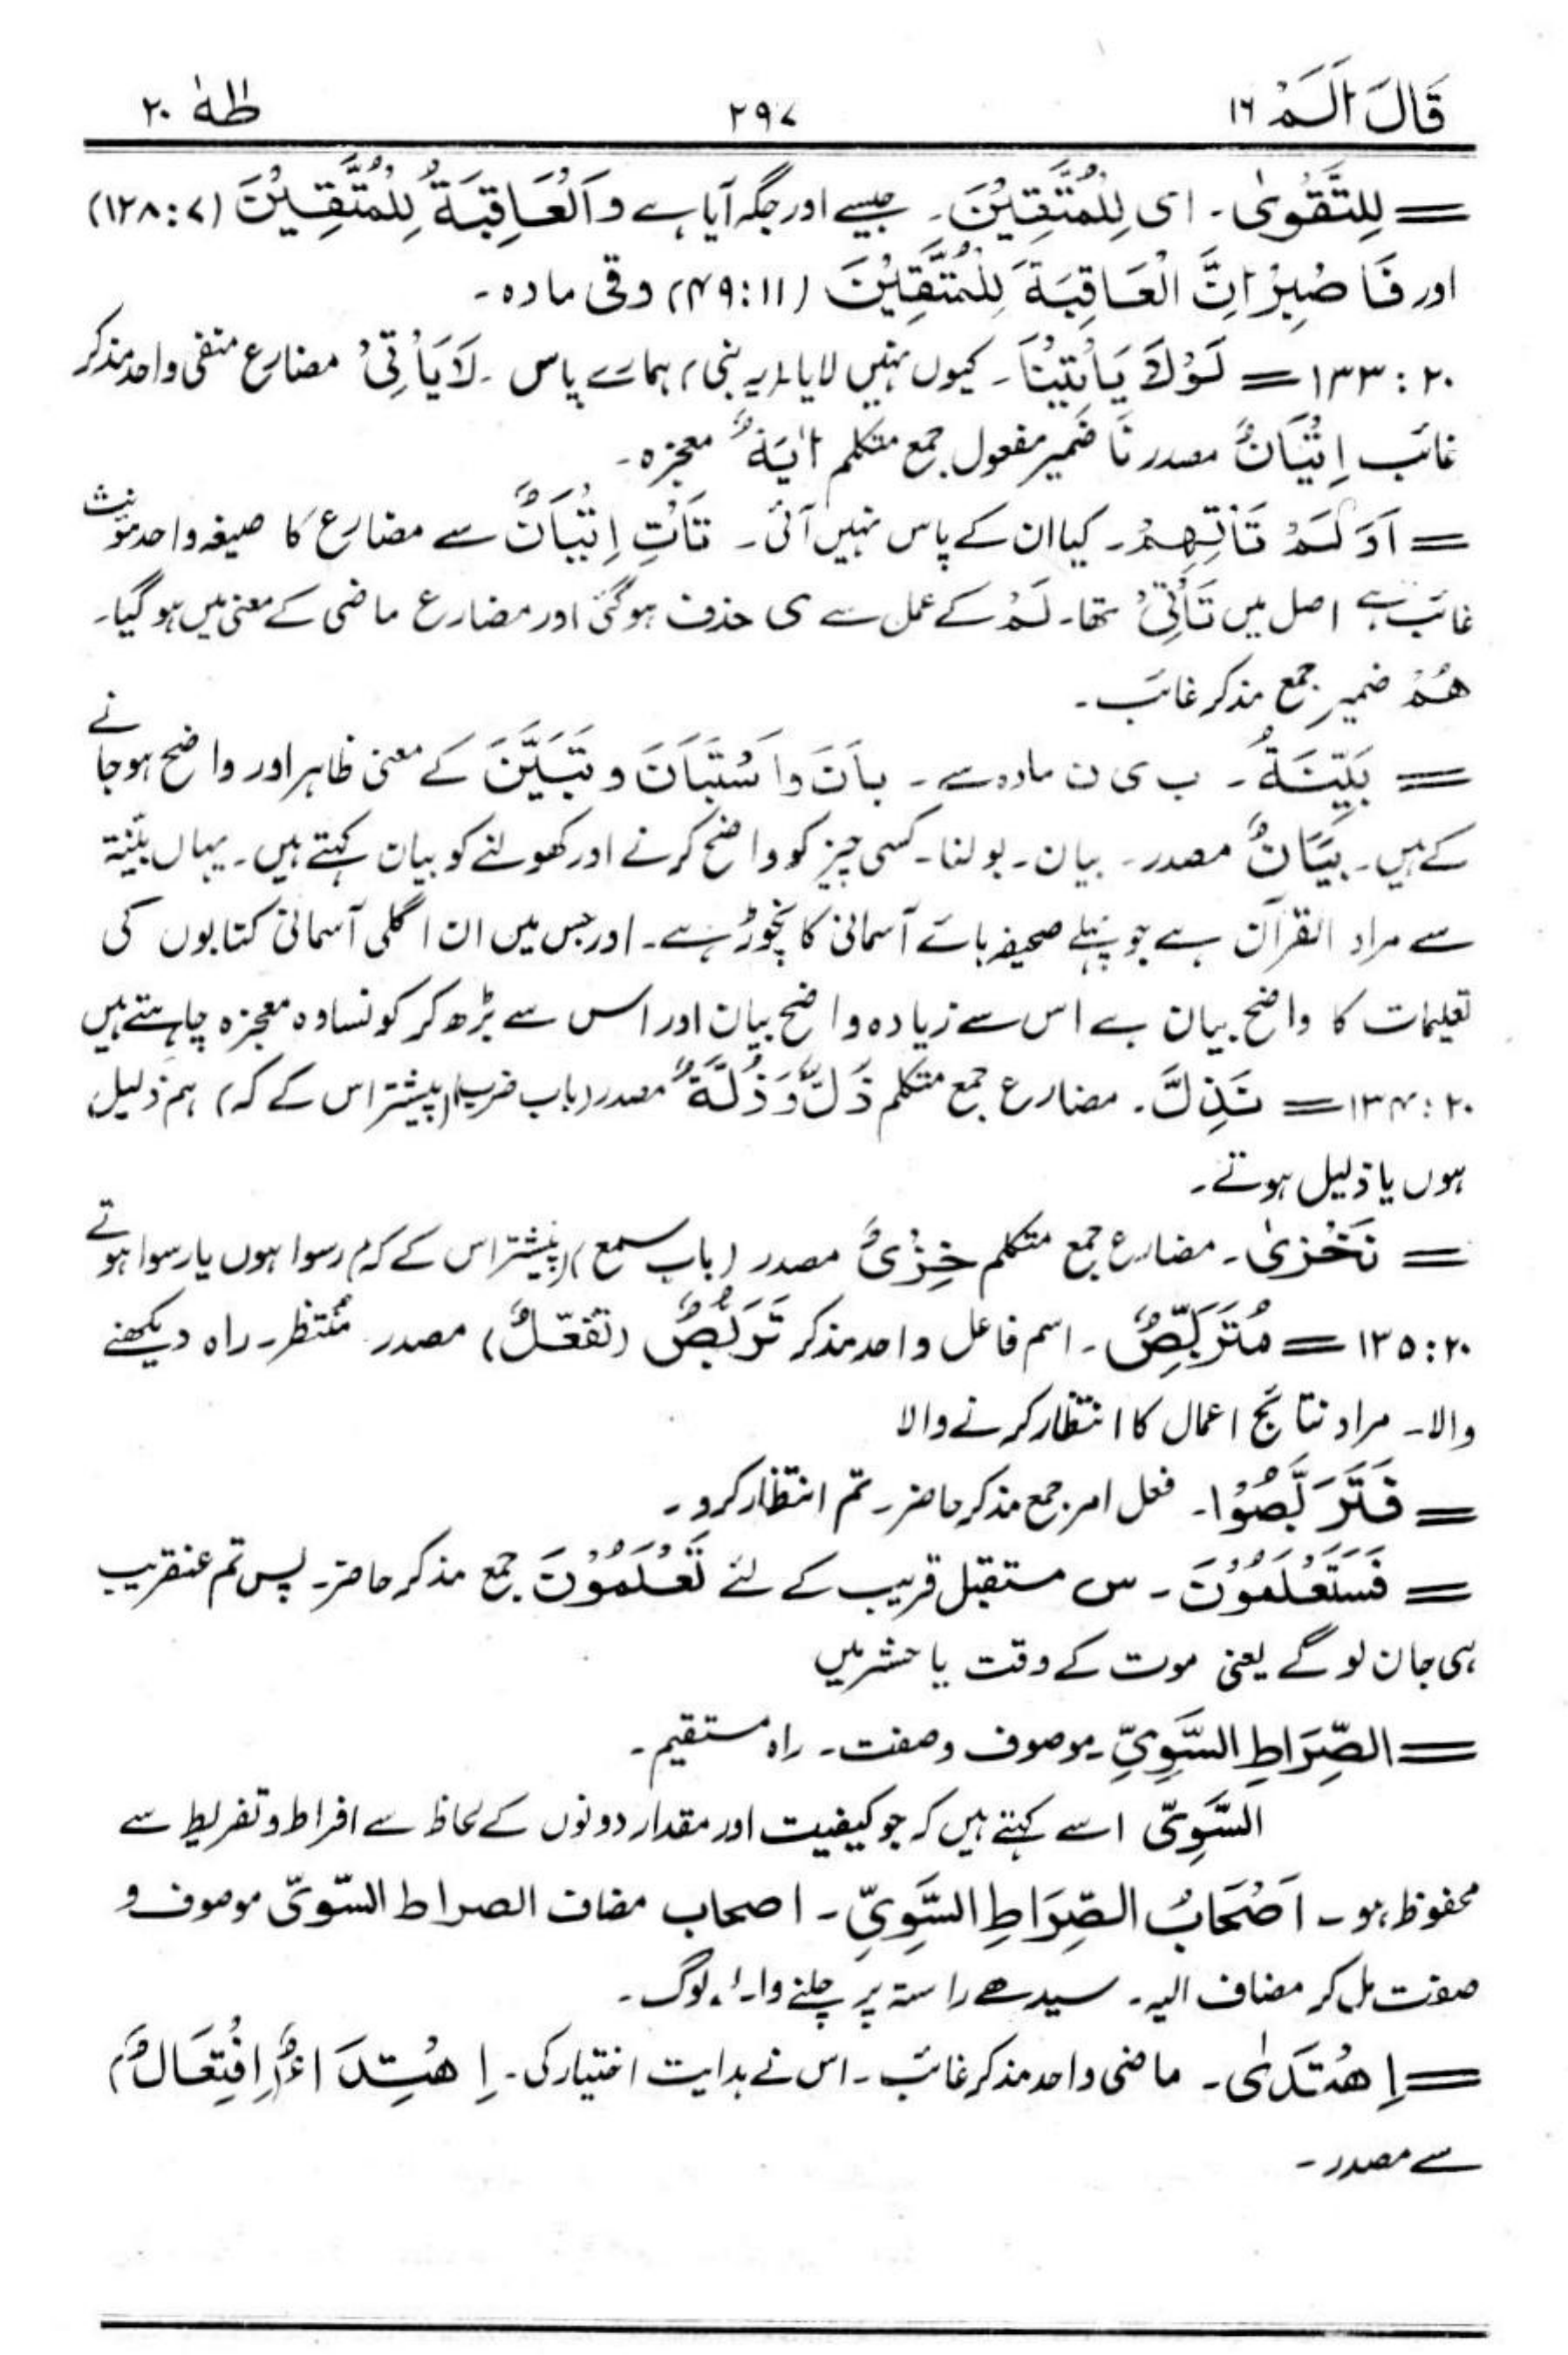 قَالَ اَلَمْ ١٦ ٢٩٧ طٰهٰ ٢٠
= لِلتَّقْوٰى۔ ای لِلْمُتَّقِيْنَ۔ جیسے اور جگہ آیا ہے وَالْعَاقِبَةُ لِلْمُتَّقِيْنَ (١٢٨:٧)
اور فَاصْبِرْ اِنَّ الْعَاقِبَةَ لِلْمُتَّقِيْنَ (٤٩:١١) وقی مادہ۔
١٣٣:٢٠ = لَوْلَا يَاْتِيْنَا۔ کیوں نہیں لایا (یہ نبی) ہمارے پاس۔ لَا يَاْتِیْ مضارع منفی واحد مذکر
غائب اِتْيَانٌ مصدر نَا ضمیر مفعول جمع متکلم اٰيَةٌ معجزہ۔
= اَوَلَمْ تَاْتِهِمْ۔ کیا ان کے پاس نہیں آئی۔ تَاْتِ اِتْيَانٌ سے مضارع کا صیغہ واحد مؤنث
غائب ہے اصل میں تَاْتِیْ تھا۔ لَمْ کے عمل سے ی حذف ہوگئی اور مضارع ماضی کے معنی میں ہوگیا۔
هُمْ ضمیر جمع مذکر غائب۔
= بَيِّنَةُ۔ ب ی ن مادہ سے۔ بَانَ وَاسْتَبَانَ وَ تَبَيَّنَ کے معنی ظاہر اور واضح ہوجانے
کے ہیں۔ بَيَانٌ مصدر۔ بیان۔ بولنا۔ کسی چیز کو واضح کرنے اور کھولنے کو بیان کہتے ہیں۔ یہاں بیّنۃ
سے مراد القرآن ہے جو پہلے صحیفہ ہائے آسمانی کا نچوڑ ہے۔ اور جس میں ان اگلی آسمانی کتابوں کی
تعلیمات کا واضح بیان ہے اس سے زیادہ واضح بیان اور اس سے بڑھ کر کونسا وہ معجزہ چاہتے ہیں
١٣٤:٢٠ = نَذِلَّ۔ مضارع جمع متکلم ذَلٌّ وَ ذُلَّةٌ مصدر (باب ضرب) (پیشتر اس کے کہ) ہم ذلیل
ہوں یا ذلیل ہوتے۔
= نَخْزٰى۔ مضارع جمع متکلم خِزْیٌ مصدر (باب سمع) (پیشتر اس کے کہ ہم رسوا ہوں یا رسوا ہوتے
١٣٥:٢٠ = مُتَرَبِّصٌ۔ اسم فاعل واحد مذکر تَرَبُّصٌ (تَفَعُّلٌ) مصدر۔ منتظر۔ راہ دیکھنے
والا۔ مراد نتائج اعمال کا انتظار کرنے والا
= فَتَرَبَّصُوْا۔ فعل امر جمع مذکر حاضر۔ تم انتظار کرو۔
= فَسَتَعْلَمُوْنَ۔ س مستقبل قریب کے لئے تَعْلَمُوْنَ جمع مذکر حاضر۔ پس تم عنقریب
ہی جان لو گے یعنی موت کے وقت یا حشر میں
= الصِّرَاطِ السَّوِيِّ۔ موصوف وصفت۔ راہ مستقیم۔
السَّوِیّ اسے کہتے ہیں کہ جو کیفیت اور مقدار دونوں کے لحاظ سے افراط و تفریط سے
محفوظ ہو۔ اَصْحَابُ الصِّرَاطِ السَّوِيِّ۔ اصحاب مضاف الصراط السّویّ موصوف و
صفت مل کر مضاف الیہ۔ سیدھے راستہ پر چلنے والے لوگ۔
= اِهْتَدٰى۔ ماضی واحد مذکر غائب۔ اس نے ہدایت اختیار کی۔ اِهْتِدَاءٌ (اِفْتِعَالٌ)
سے مصدر۔